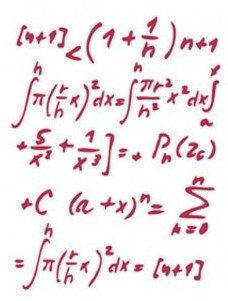 [n+1] < (1 + 1/n) n+1
∫ⁿ π(r/h x)² dx = ∫ⁿ πr²/h² x² dx ∫ₐˣ
+ 5/x² + 1/x³ ] = + Pₙ(z₀)
+ C (a + x)ⁿ = Σⁿₖ₌₀
= ∫ʰ π(r/h x)² dx = [n+1]